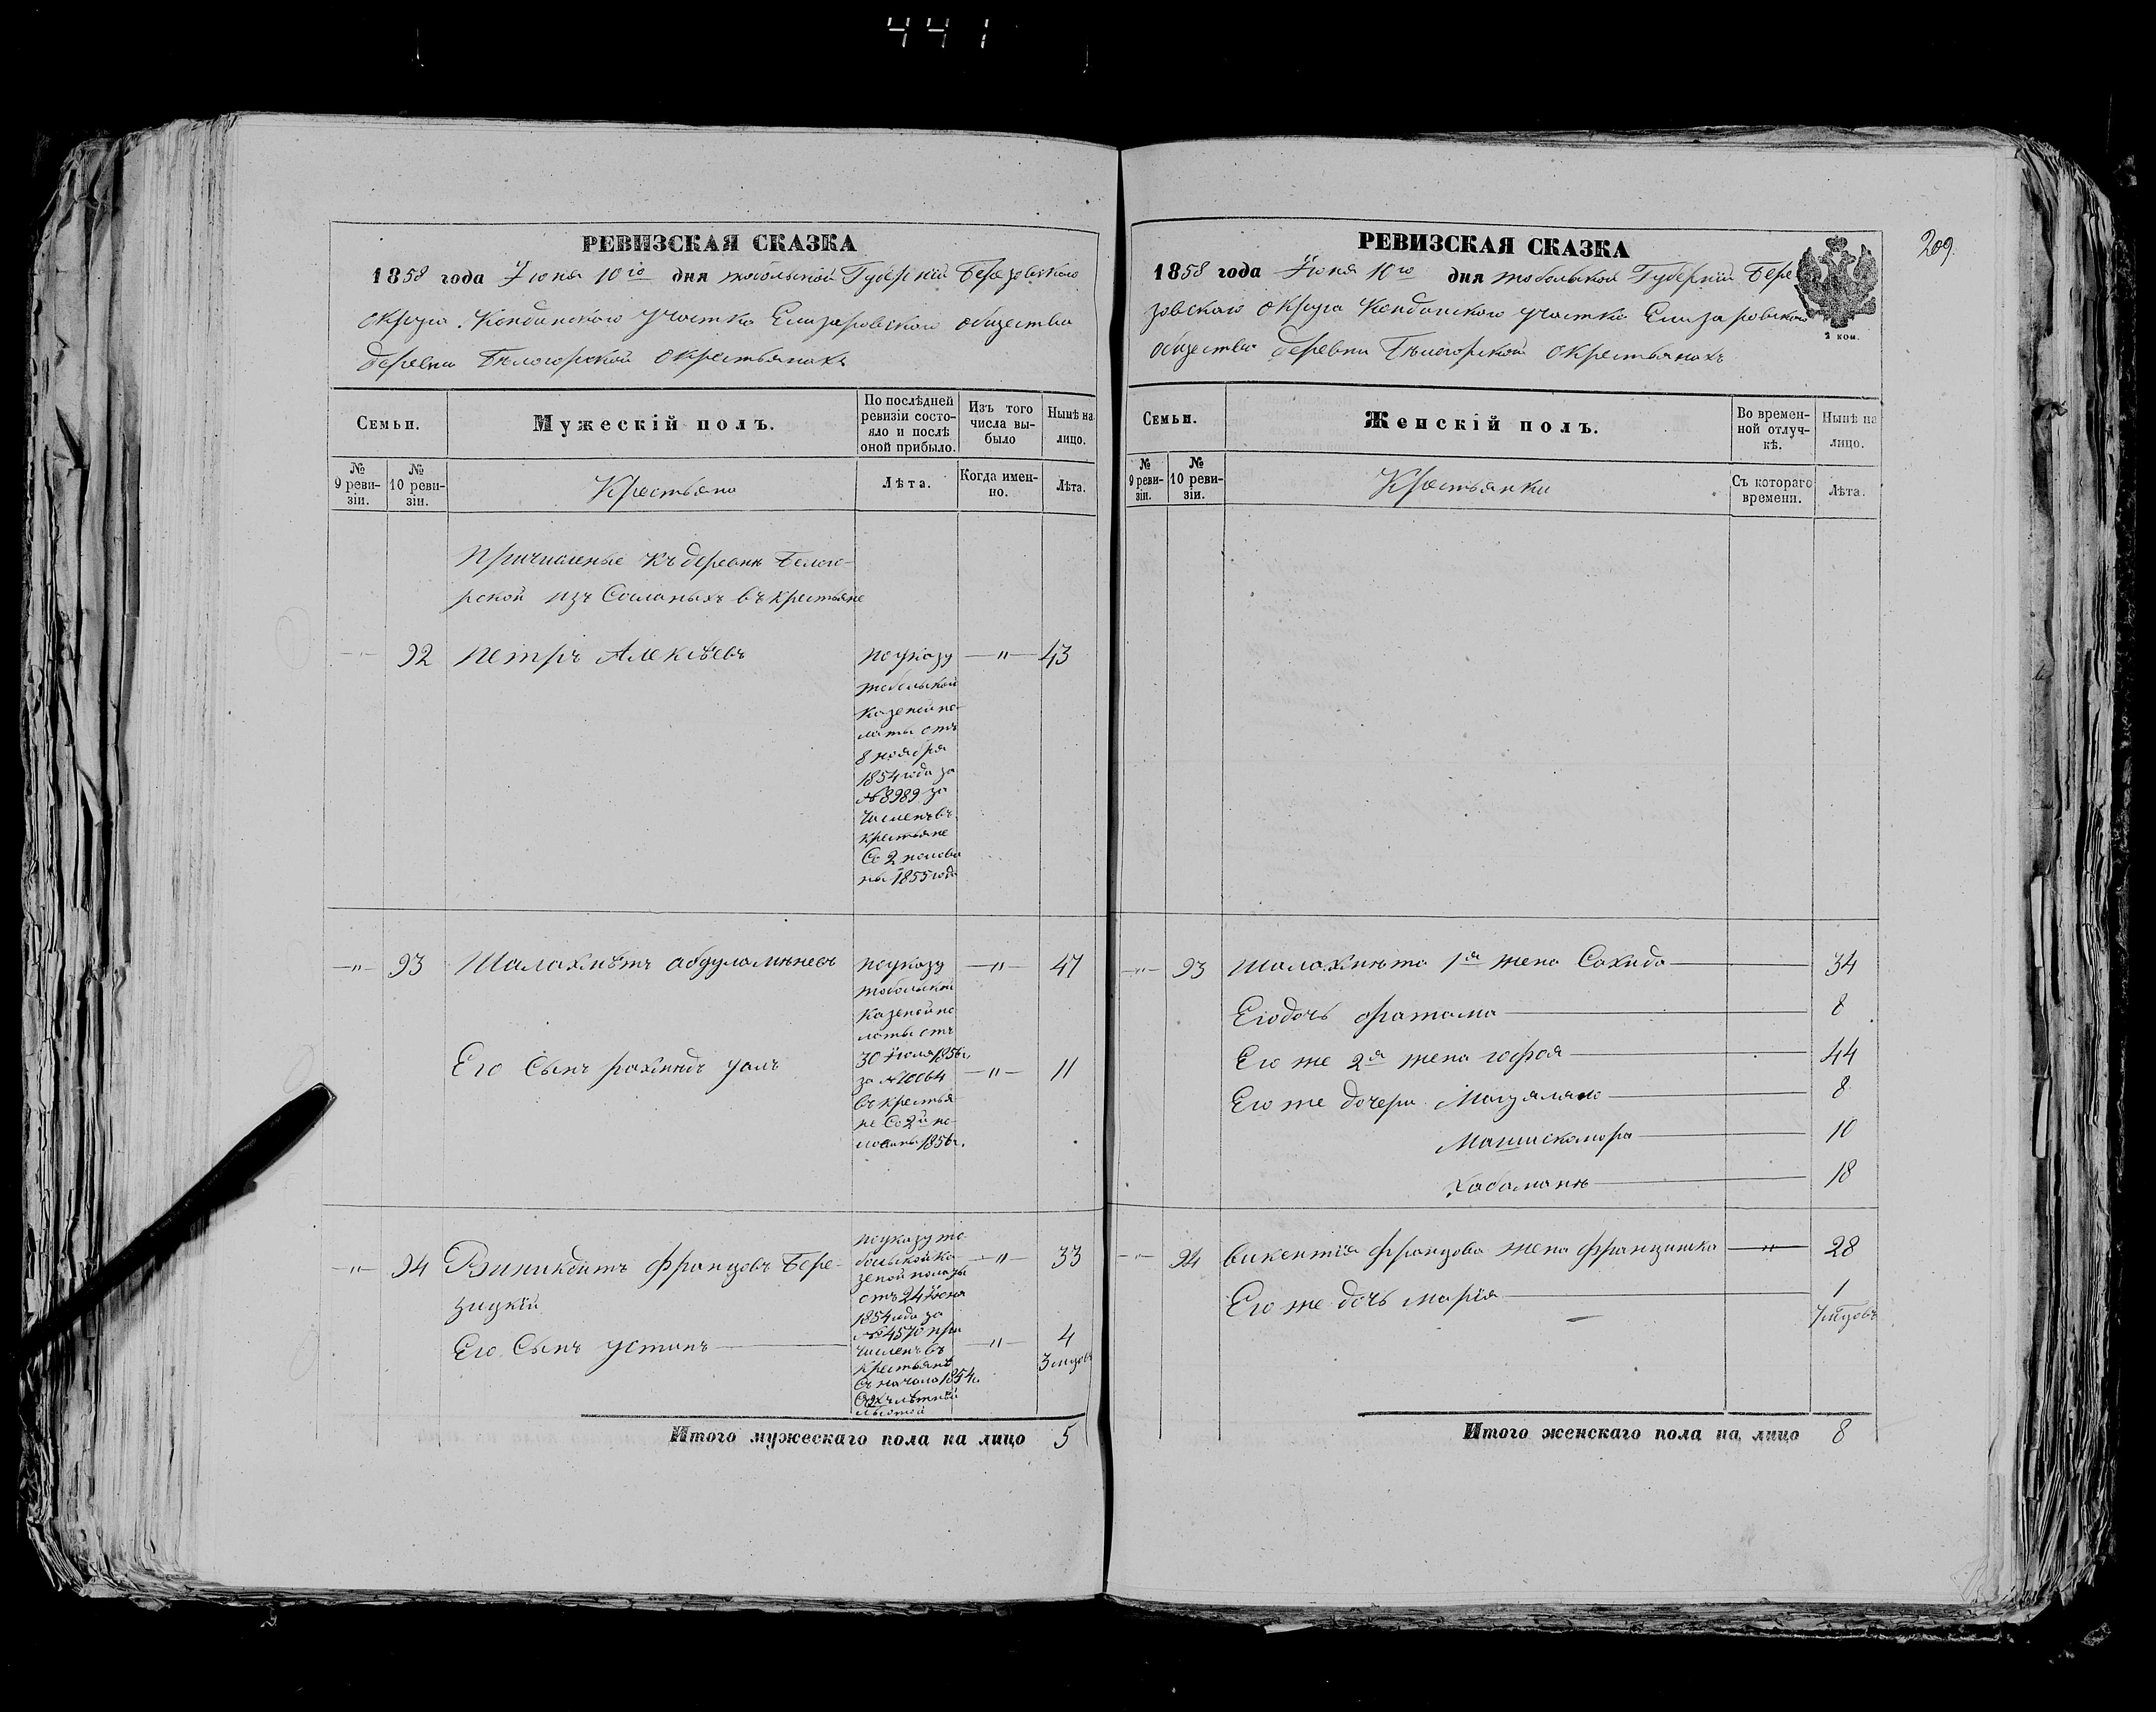 441
РЕВИЗСКАЯ СКАЗКА
1858 года Іюня 10го дня тобольской Губерніи Березовскаго
округа Кондинскаго участка Елизаровскаго общества
деревни Бѣлогорской окрестьянахъ
Семьи.
Мужескій полъ.
По послѣдней
ревизіи состо-
яло и послѣ
оной прибыло.
Изъ того
числа вы-
было
Нынѣ на
лицо.
№
9 реви-
зіи.
№
10 реви-
зіи.
Крестьяна
Лѣта.
Когда имен-
но.
Лѣта.
Причисленые къ деревни Белого-
рской изъ Сосланыхъ въ крестьяне
92 Петръ Алексѣевъ —"— 43
по указу
тобольской
Казеной па-
латы отъ
8 ноября
1854 года за
№ 8989 за
численъ въ
крестьяне
Со 2 полови
ны 1855 года
—"— 93 Шалахмѣтъ абдуламѣневъ —"— 47
по указу
тобольской
Казеной па
латы отъ
30 Іюля 1856 г.
за № 10064
въ крестья
не Со 2й по-
ловины 1856 г.
Его Сынъ —"— 11
—"— 94 францовъ Бере- —"— 33
зицкій
Его Сынъ устинъ —"— 4
3 мѣсцов
по указу то
больской ка
зеной палаты
отъ 24 Іюня
1854 года за
№ 4570 при
численъ въ
крестьянѣ
Съ начала 1854 г.
льготой
Итого мужескаго пола на лицо 5
209.
РЕВИЗСКАЯ СКАЗКА
2 коп.
1858 года Іюня 10го дня тобольской Губерніи Бере
зовскаго округа Кондинскаго участка Елизаровскаго
общества деревни Бѣлогорской окрестьянахъ
Семьи.
Женскій полъ.
Во времен-
ной отлуч-
кѣ.
Нынѣ на
лицо.
№
9 реви-
зіи.
№
10 реви-
зіи.
Крестьянки
Съ котораго
времени.
Лѣта.
—"— 93 Шалахмѣта 1я жена Сахида 34
Его дочь фатама 8
Его же 2я жена 44
Его же дочери 8
10
18
—"— 94 викентія францова жена францишка —"— 28
Его же дочь марія 1
7 мѣсцовъ
Итого женскаго пола на лицо 8